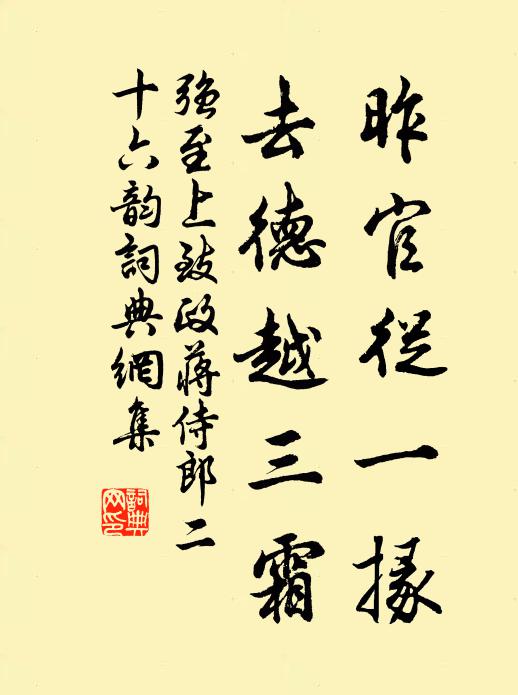 昨官從一掾
去德越三霜
強至上致政蔣侍郎二
十六韵詞典網集
詞典
网印